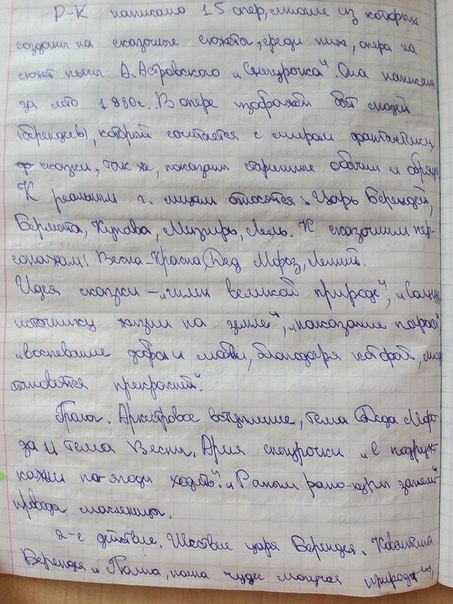 Р-К написано 15 опер, многие из которых
созданы на сказочные сюжеты, среди них, опера на
сюжет пьесы А. Астровского „Снегурочка". Она написана
за лето 1880г. В опере изображён быт людей
(берендеев), который сочетается с миром фантастики,
сказки, так же, показаны старинные обычаи и обряды
К реальным г. лицам относятся: Царь Берендей,
Бермята, Купава, Мизгирь, Лель. К сказочным пер-
сонажам: Весна-Красна, Дед Мороз, Леший.
Идея сказки – „гимн великой природе",
источнику жизни на земле",
„воспевание добра и любви, благодаря которой,
становятся прекрасней".
Пролог. Аркестровое вступление, тема Деда Моро-
за и тема Весны. Ария снегурочки „с подруж-
ками по ягоды ходить". „Раным рано
провода масленицы.
2-е действие. Шествие царя Берендея. Каватина
Берендея „Полна, полна чудес могучая природа",